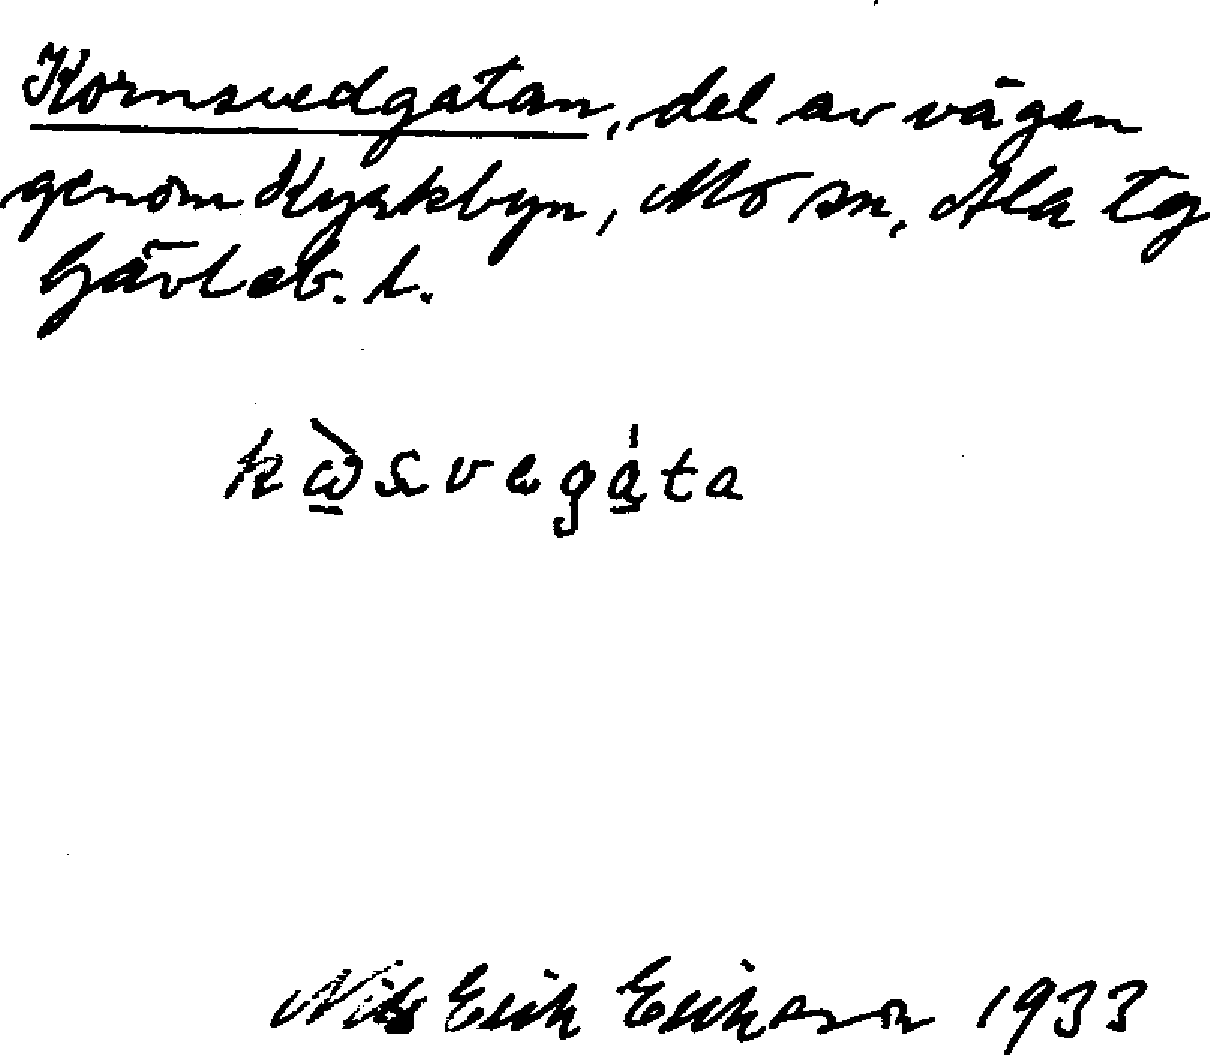 Kornsvedgatan, del av vägen
genom Kyrkbyn, Mo sn, Ala tg
Gävleb. l.
Nils Erik Eriksson 1933